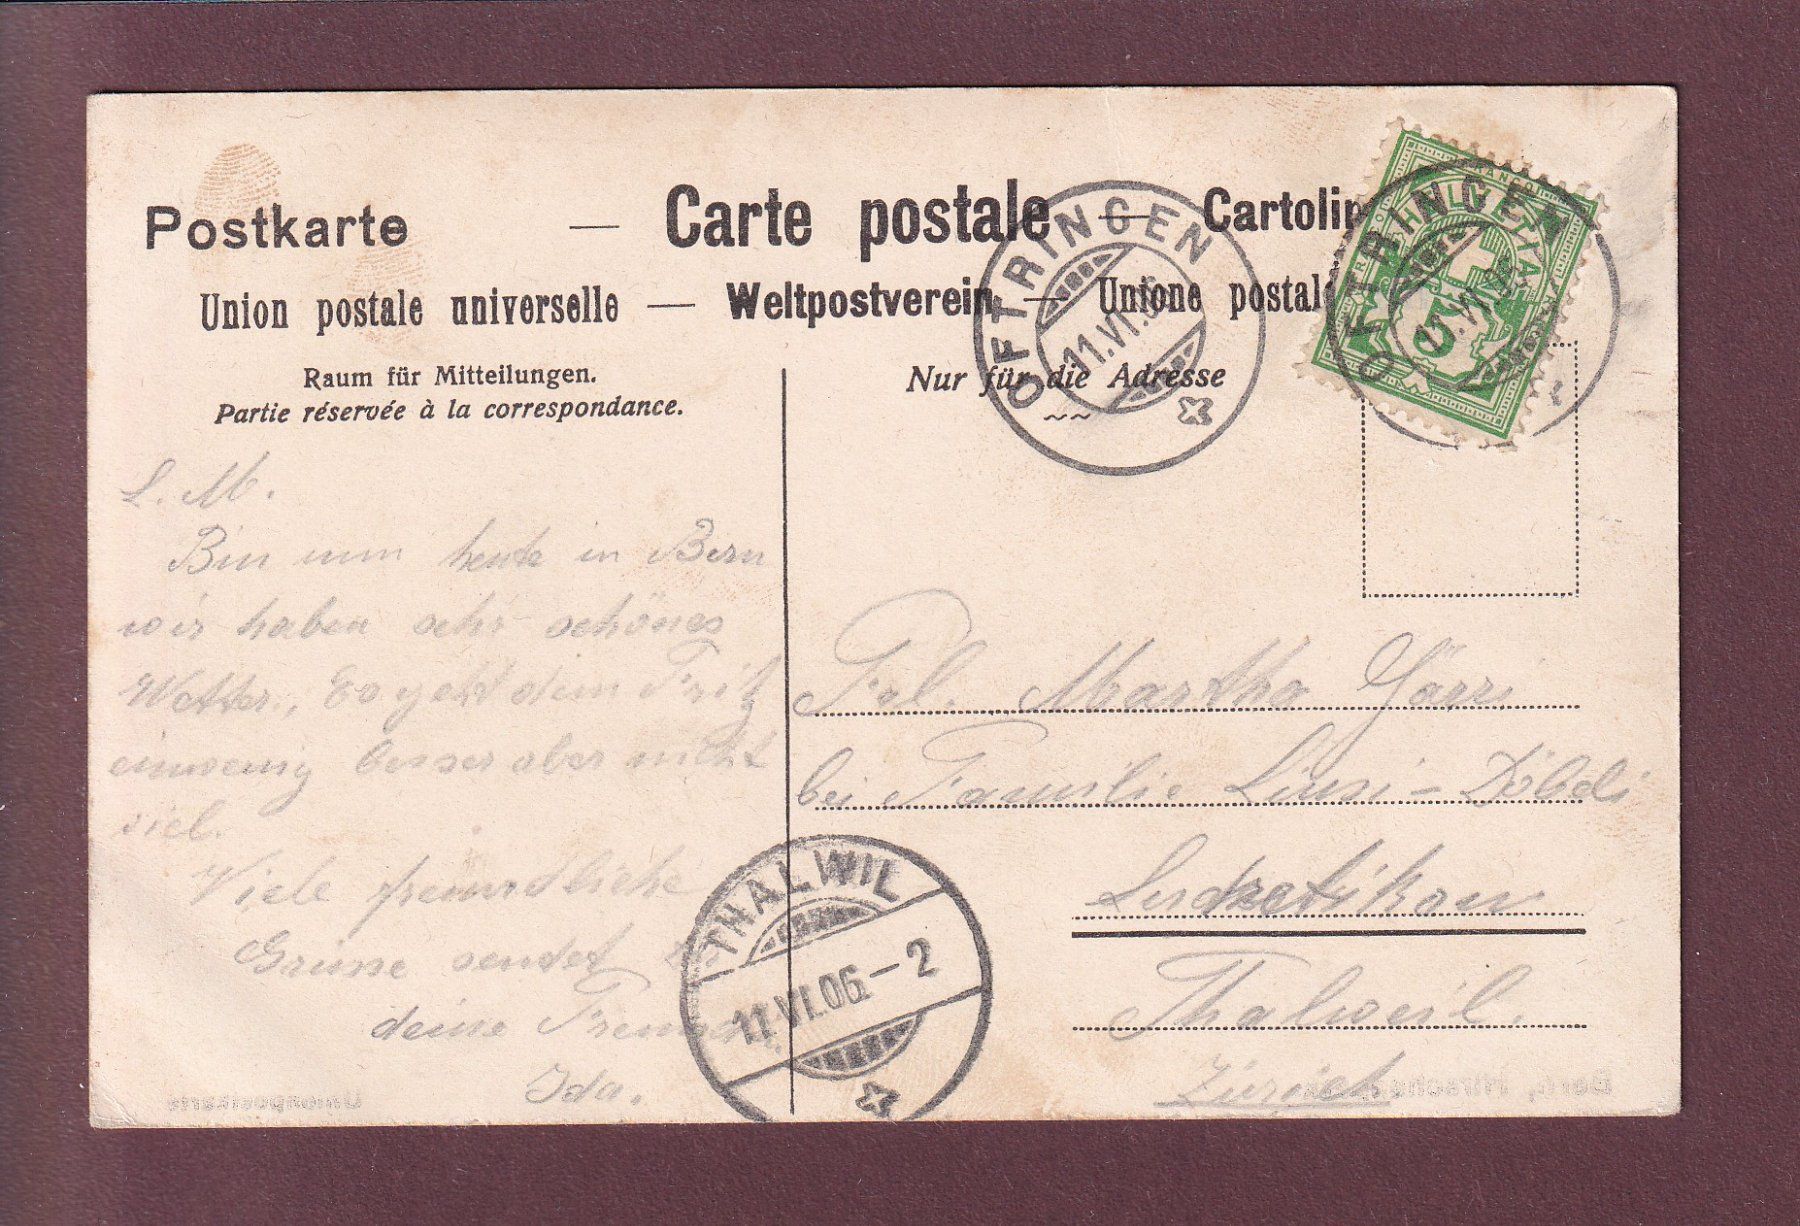 Postkarte — Carte postale — Cartolin
Union postale universelle — Weltpostverein — Unione postale
Raum für Mitteilungen.
Partie réservée à la correspondance.
Nur für die Adresse
FRANCO
HELVETIA
5
OFTRINGEN
11.VI.06
OFTRINGEN
11.VI.06
L. M.
Bin nun heute in Bern
wir haben sehr schönes
Wetter., Es geht dem Fritz
einwenig besser aber nicht
viel.
Viele freundliche
Grüsse sendet Dir
deine Freundin
Ida.
THALWIL
11.VI.06.–2
Frl. Martha
bei Familie
Thalweil.
Zürich
Unionpostkarte
Bern, Hirschen